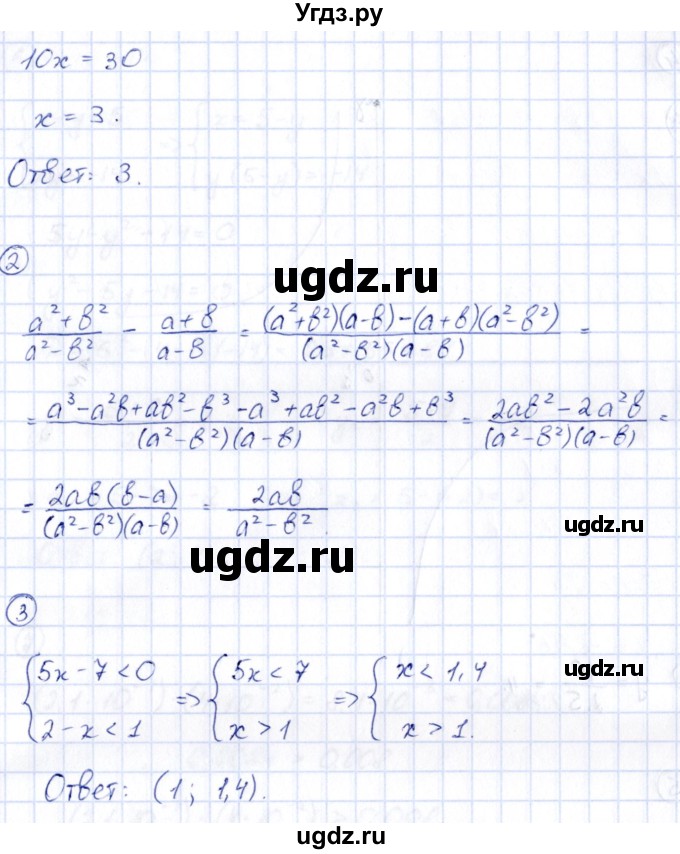 Угдз.ру
10x = 30
x = 3.
Ответ: 3.
2
ugdz.ru
(a² + b²)/(a² - b²) - (a + b)/(a - b) = ((a² + b²)(a - b) - (a + b)(a² - b²))/((a² - b²)(a - b)) =
= (a³ - a²b + ab² - b³ - a³ + ab² - a²b + b³)/((a² - b²)(a - b)) = (2ab² - 2a²b)/((a² - b²)(a - b)) =
= (2ab(b - a))/((a² - b²)(a - b)) = 2ab/(a² - b²).
ugdz.ru
ugdz.ru
3
{5x - 7 < 0 => {5x < 7 => {x < 1,4
{2 - x < 1 {x > 1 {x > 1.
ugdz.ru
Ответ: (1; 1,4).
ugdz.ru